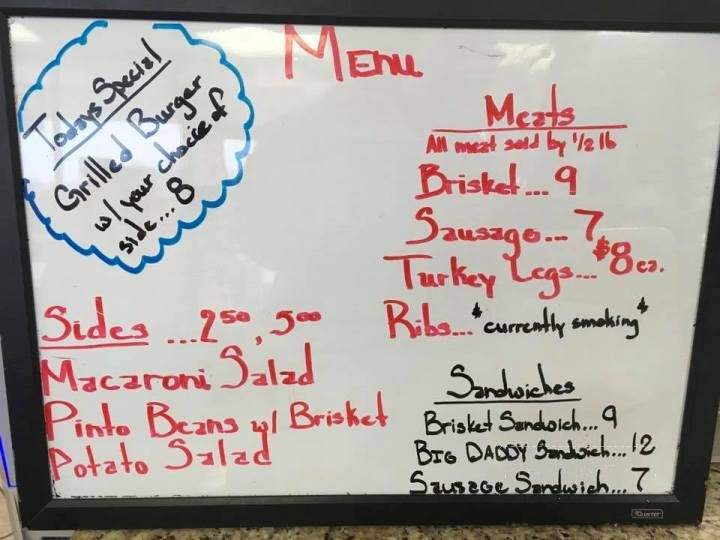 Menu
Todays Special
Grilled Burger
w/ your choice of
side... 8
Meats
All meat sold by 1/2 lb
Brisket... 9
Sausage... 7
Turkey Legs... $8 ea.
Ribs... *currently smoking*
Sides ...2 50, 5 00
Macaroni Salad
Pinto Beans w/ Brisket
Potato Salad
Sandwiches
Brisket Sandwich... 9
BIG DADDY Sandwich... 12
Sausage Sandwich... 7
Quartet